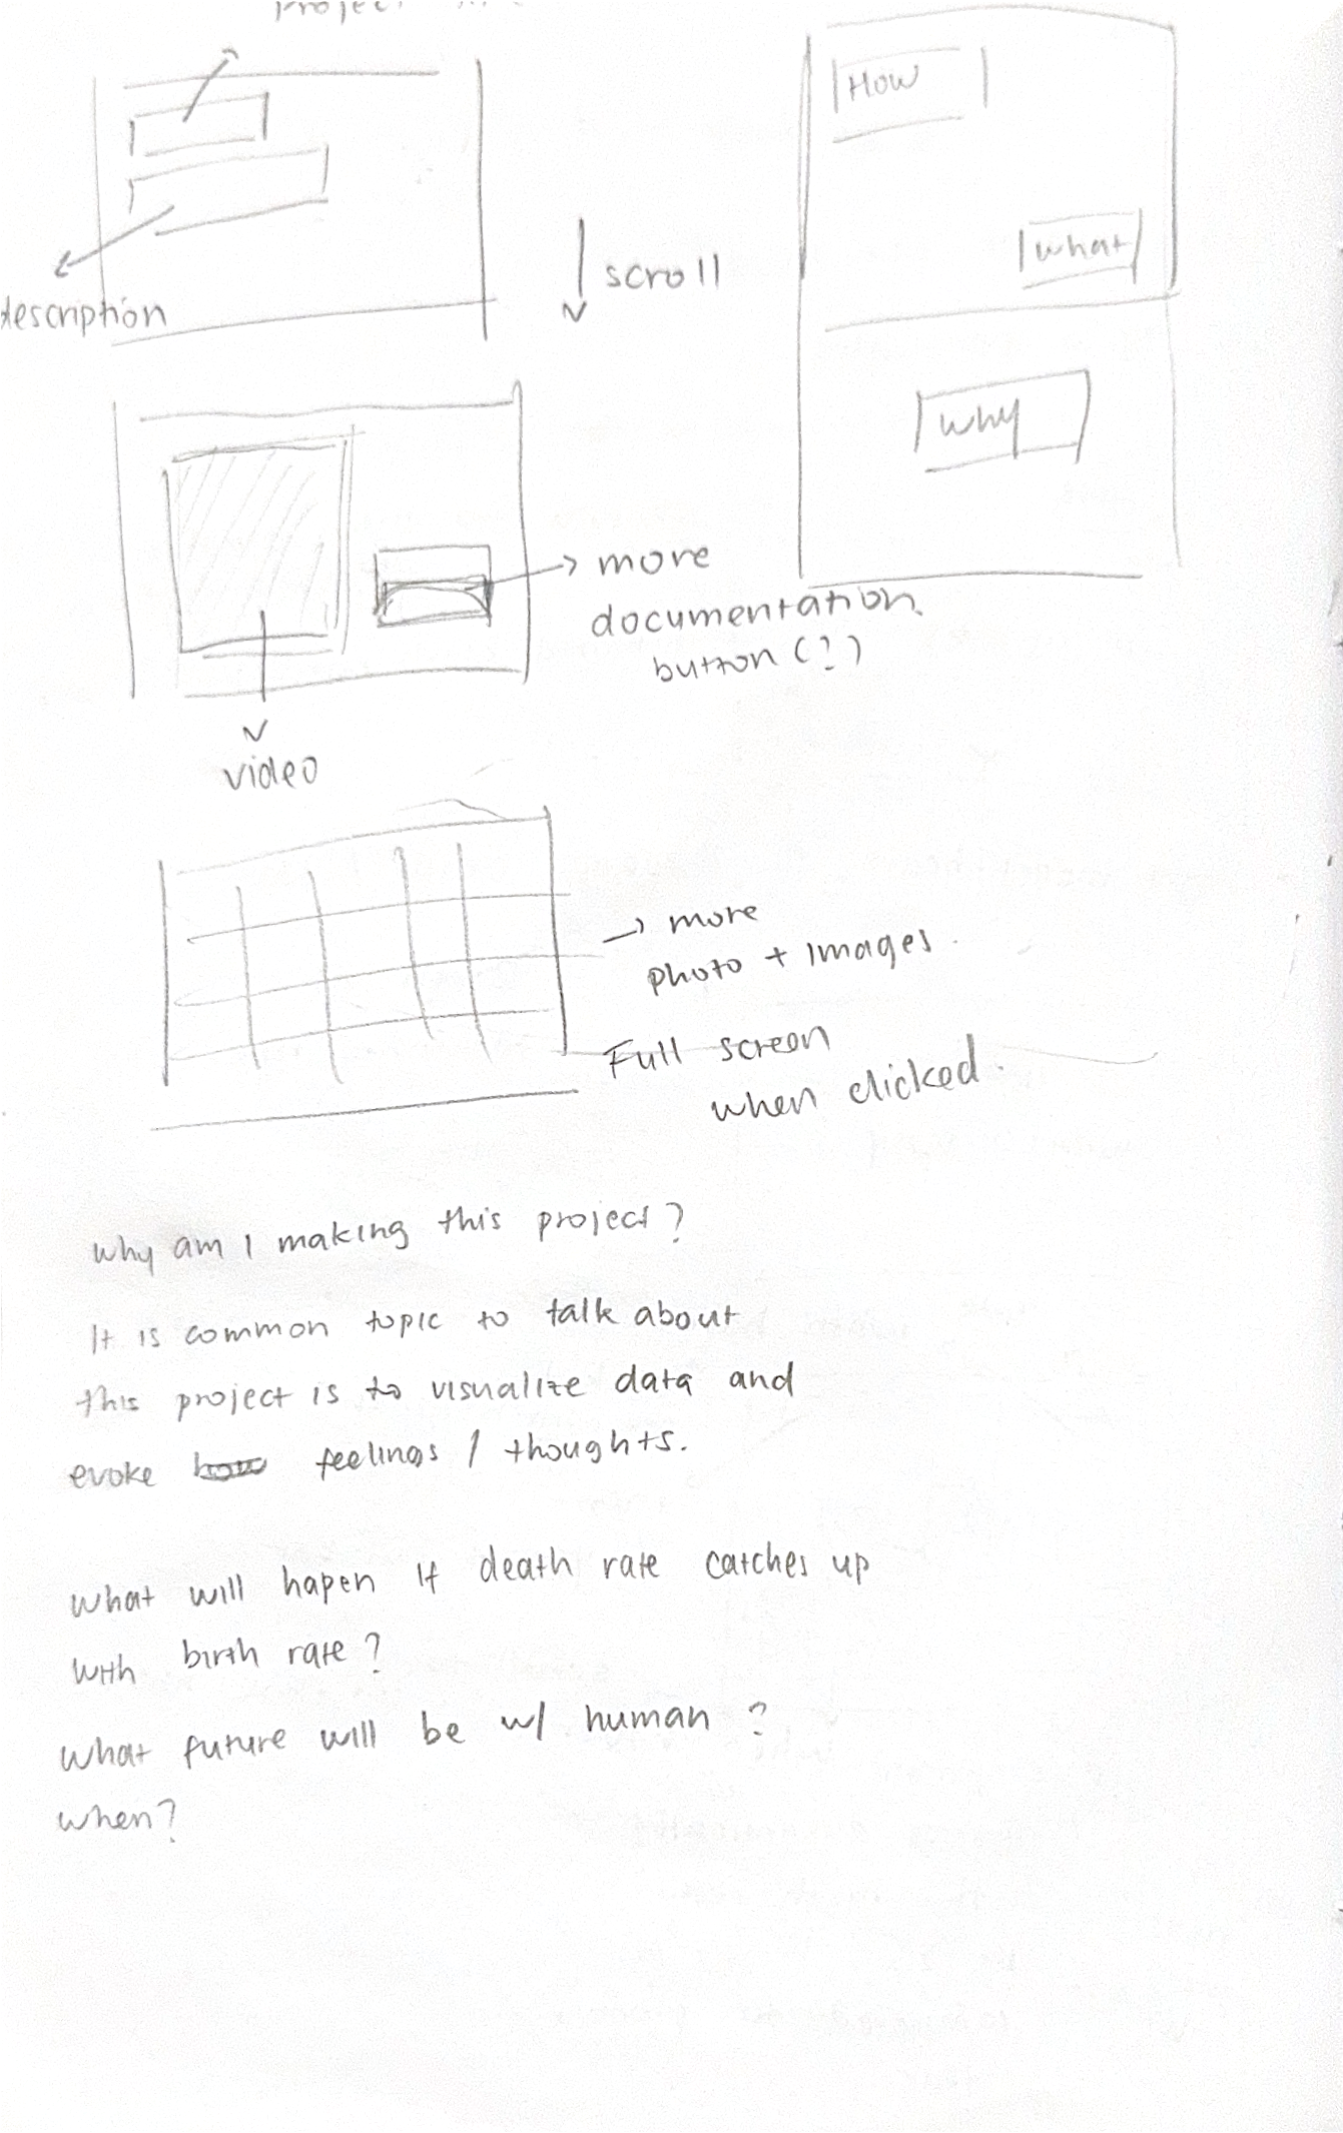 project
How
what
description
scroll
why
more
documentation
button (?)
video
more
photo + images.
Full screen
when clicked.
why am I making this project?
It is common topic to talk about
this project is to visualize data and
evoke how feelings / thoughts.
what will hapen if death rate catches up
with birth rate?
what future will be w/ human ?
when?